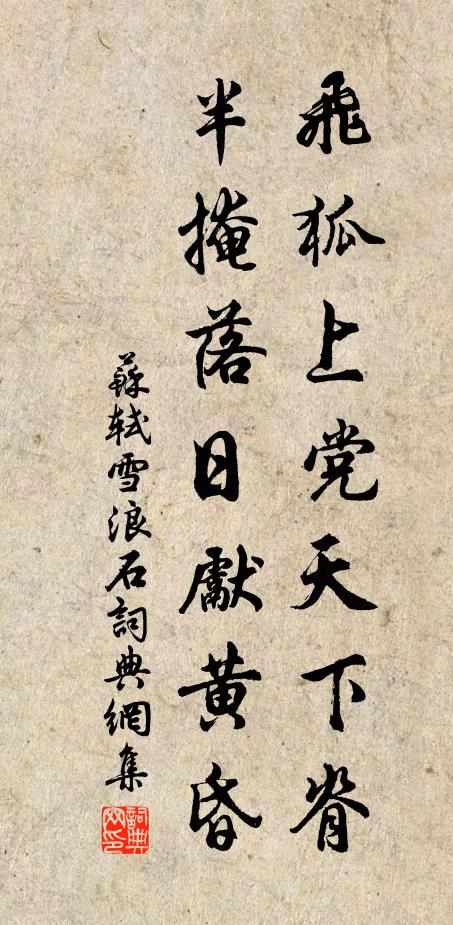 飛狐上党天下脊
半掩落日獻黄昏
蘇軾雪浪石詞典網集
詞典网印